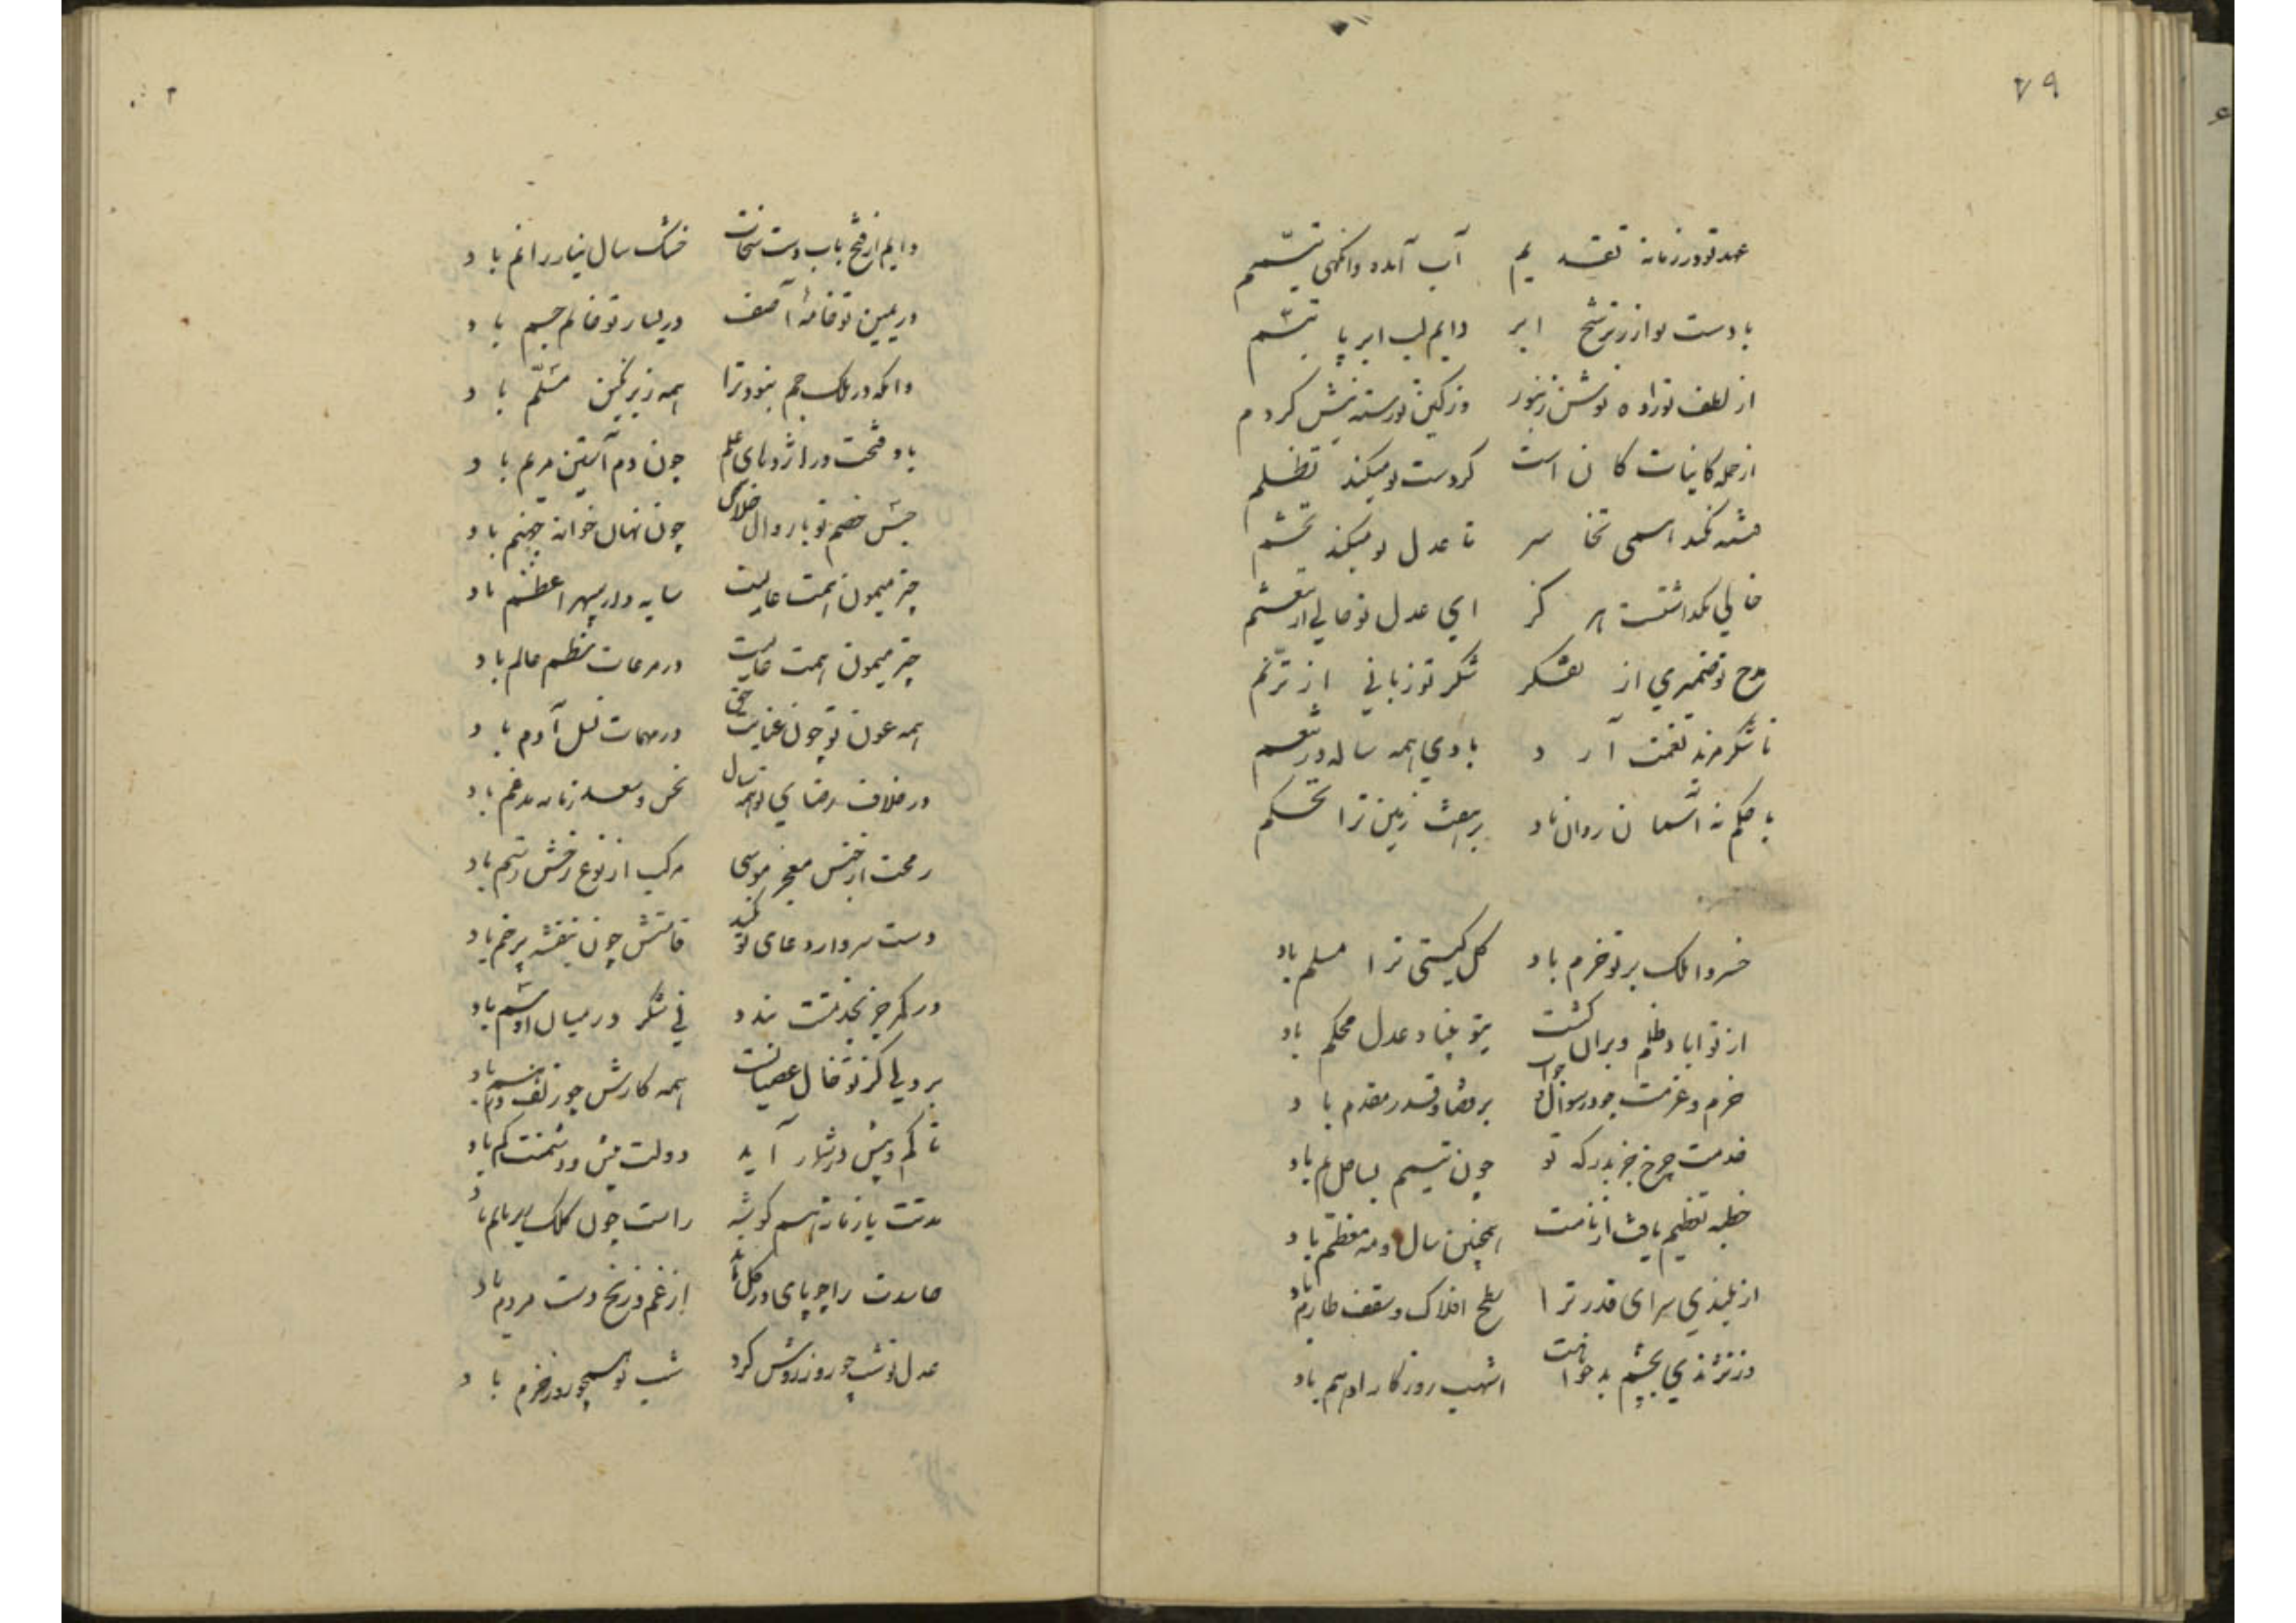 ۷۹
عهد تو در زمانه تقدیم آب آمده وانگهی تیمم
با دست تو از ترشح ابر دایم لب ابر با تبسم
از لطف تو زاده نوش زنبور وز کین تو رسته نیش کژدم
از جمله کاینات کان است کز دست تو میکند تظلم
فتنه نکند همی تجاسر تا عدل تو میکند تجشم
خالی نگذاشتست هرگز ای عدل تو خالی از
مدح تو ضمیری از تفکر شکر تو زبانی از ترنم
تا شکر مزید نعمت آرد بادی همه ساله در تنعم
با حکم تو آسمان روان باد بر هفت زمین ترا تحکم
خسروا ملک بر تو خرم باد کل گیتی ترا مسلم باد
از تو اباد ظلم ویران گشت بتو بنیاد عدل محکم باد
حزم و عزمت چو در سوال و جواب بر قضا و قدر مقدم باد
خدمت چرخ جز بدرگه تو چون تیمم بساحل یم باد
خطبه تعظیم یافت از نامت همچنین سال و مه معظم باد
از بلندی سرای قدر ترا سطح افلاک و سقف طارم باد
وز نژندی بچشم بدخواهت اشهب روزگار ادهم باد
دایم از فتح باب دست سخات خشک سال نیاز را نم باد
در یمین تو خامهٔ آصف در یسار تو خاتم جم باد
وانکه در ملک جم نبود ترا همه زیر نگین مسلم باد
باد فتحت در اژدهای علم چون دم آستین مریم باد
جیش خصم تو بار وال خلاص چون نهال خوانه جهنم باد
چتر میمون همت عالیت سایه دار سپهر اعظم باد
چتر میمون همت عالیت در مرعات نظم عالم باد
همه عون تو چون عنایت حق در مهمات نسل آدم باد
در خلاف رضای تو همه سال نحس و سعد زمانه مدغم باد
رمحت از جنس معجز موسی مرکب از نوع رخش رستم باد
دست سرو ار دعای تو نکند قامتش چون بنفشه پر خم باد
ور کمر جز بخدمتت بندد نی شکر در میان او سم باد
بر ولی کز تو خال عصیانست همه کارش چو زلف درهم باد
تا کم و بیش در شمار آید دولت بیش و دشمنت کم باد
مدتت با زمانه هم گوشه رامت چون کلک باد
حاسدت را چو پای در گل ماند از غم و رنج دست مردم باد
عدل تو شب چو روز روشن کرد شب تو همچو روز خرم باد